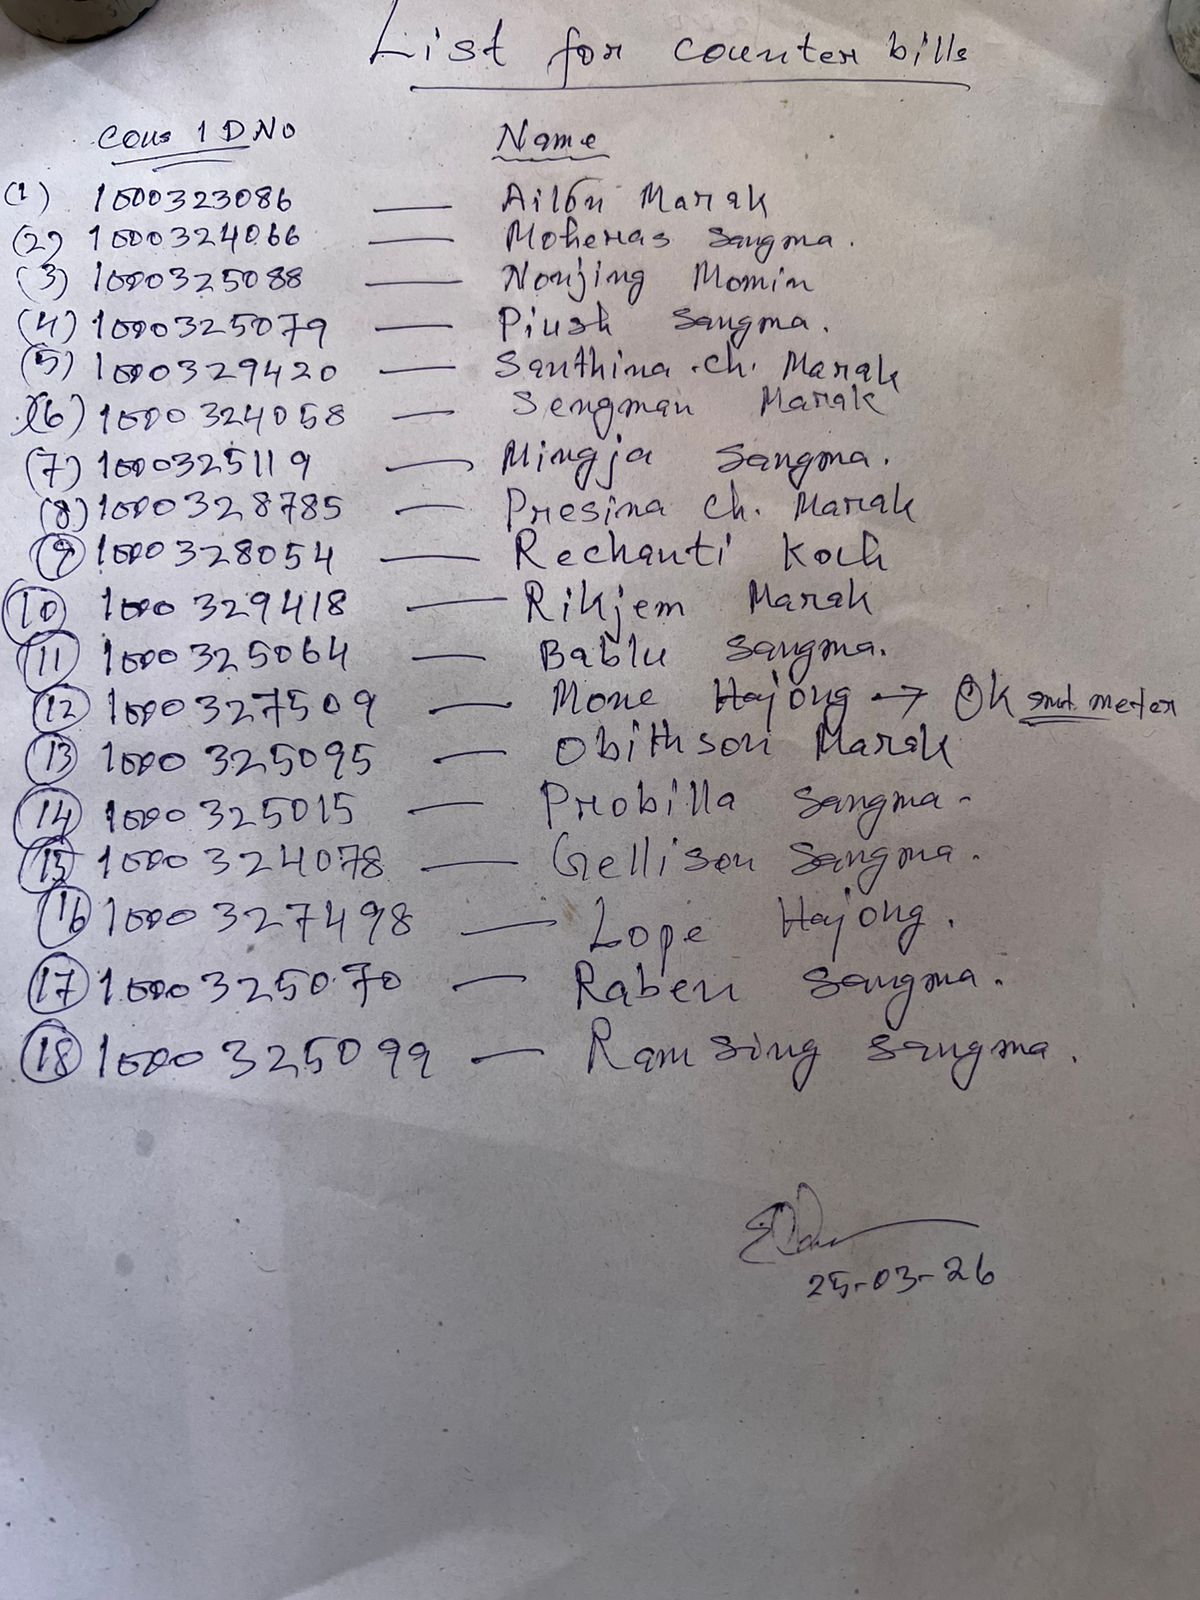 List for counter bills
Cons I D NO Name
(1) 1000323086 — Ailbn Marak
(2) 1000324066 — Moheras Sangma.
(3) 1000325088 — Nonjing Momin
(4) 1000325079 — Piush Sangma.
(5) 1000329420 — Santhina .ch. Marak
(6) 1000324058 — Sengman Marak
(7) 1000325119 — Mingja Sangma.
(8) 1000328785 — Presina ch. Marak
(9) 1000328054 — Rechanti Koch
(10) 1000329418 — Rikjem Marak
(11) 1000325064 — Bablu Sangma.
(12) 1000327509 — Mone Hajong → Ok smt meter
(13) 1000325095 — Obithson Marak
(14) 1000325015 — Probilla Sangma-
(15) 1000324078 — Gellison Sangma.
(16) 1000327498 — Lope Hajong.
(17) 1000325070 — Raben Sangma.
(18) 1000325099 — Ramsing Sangma.
25-03-26